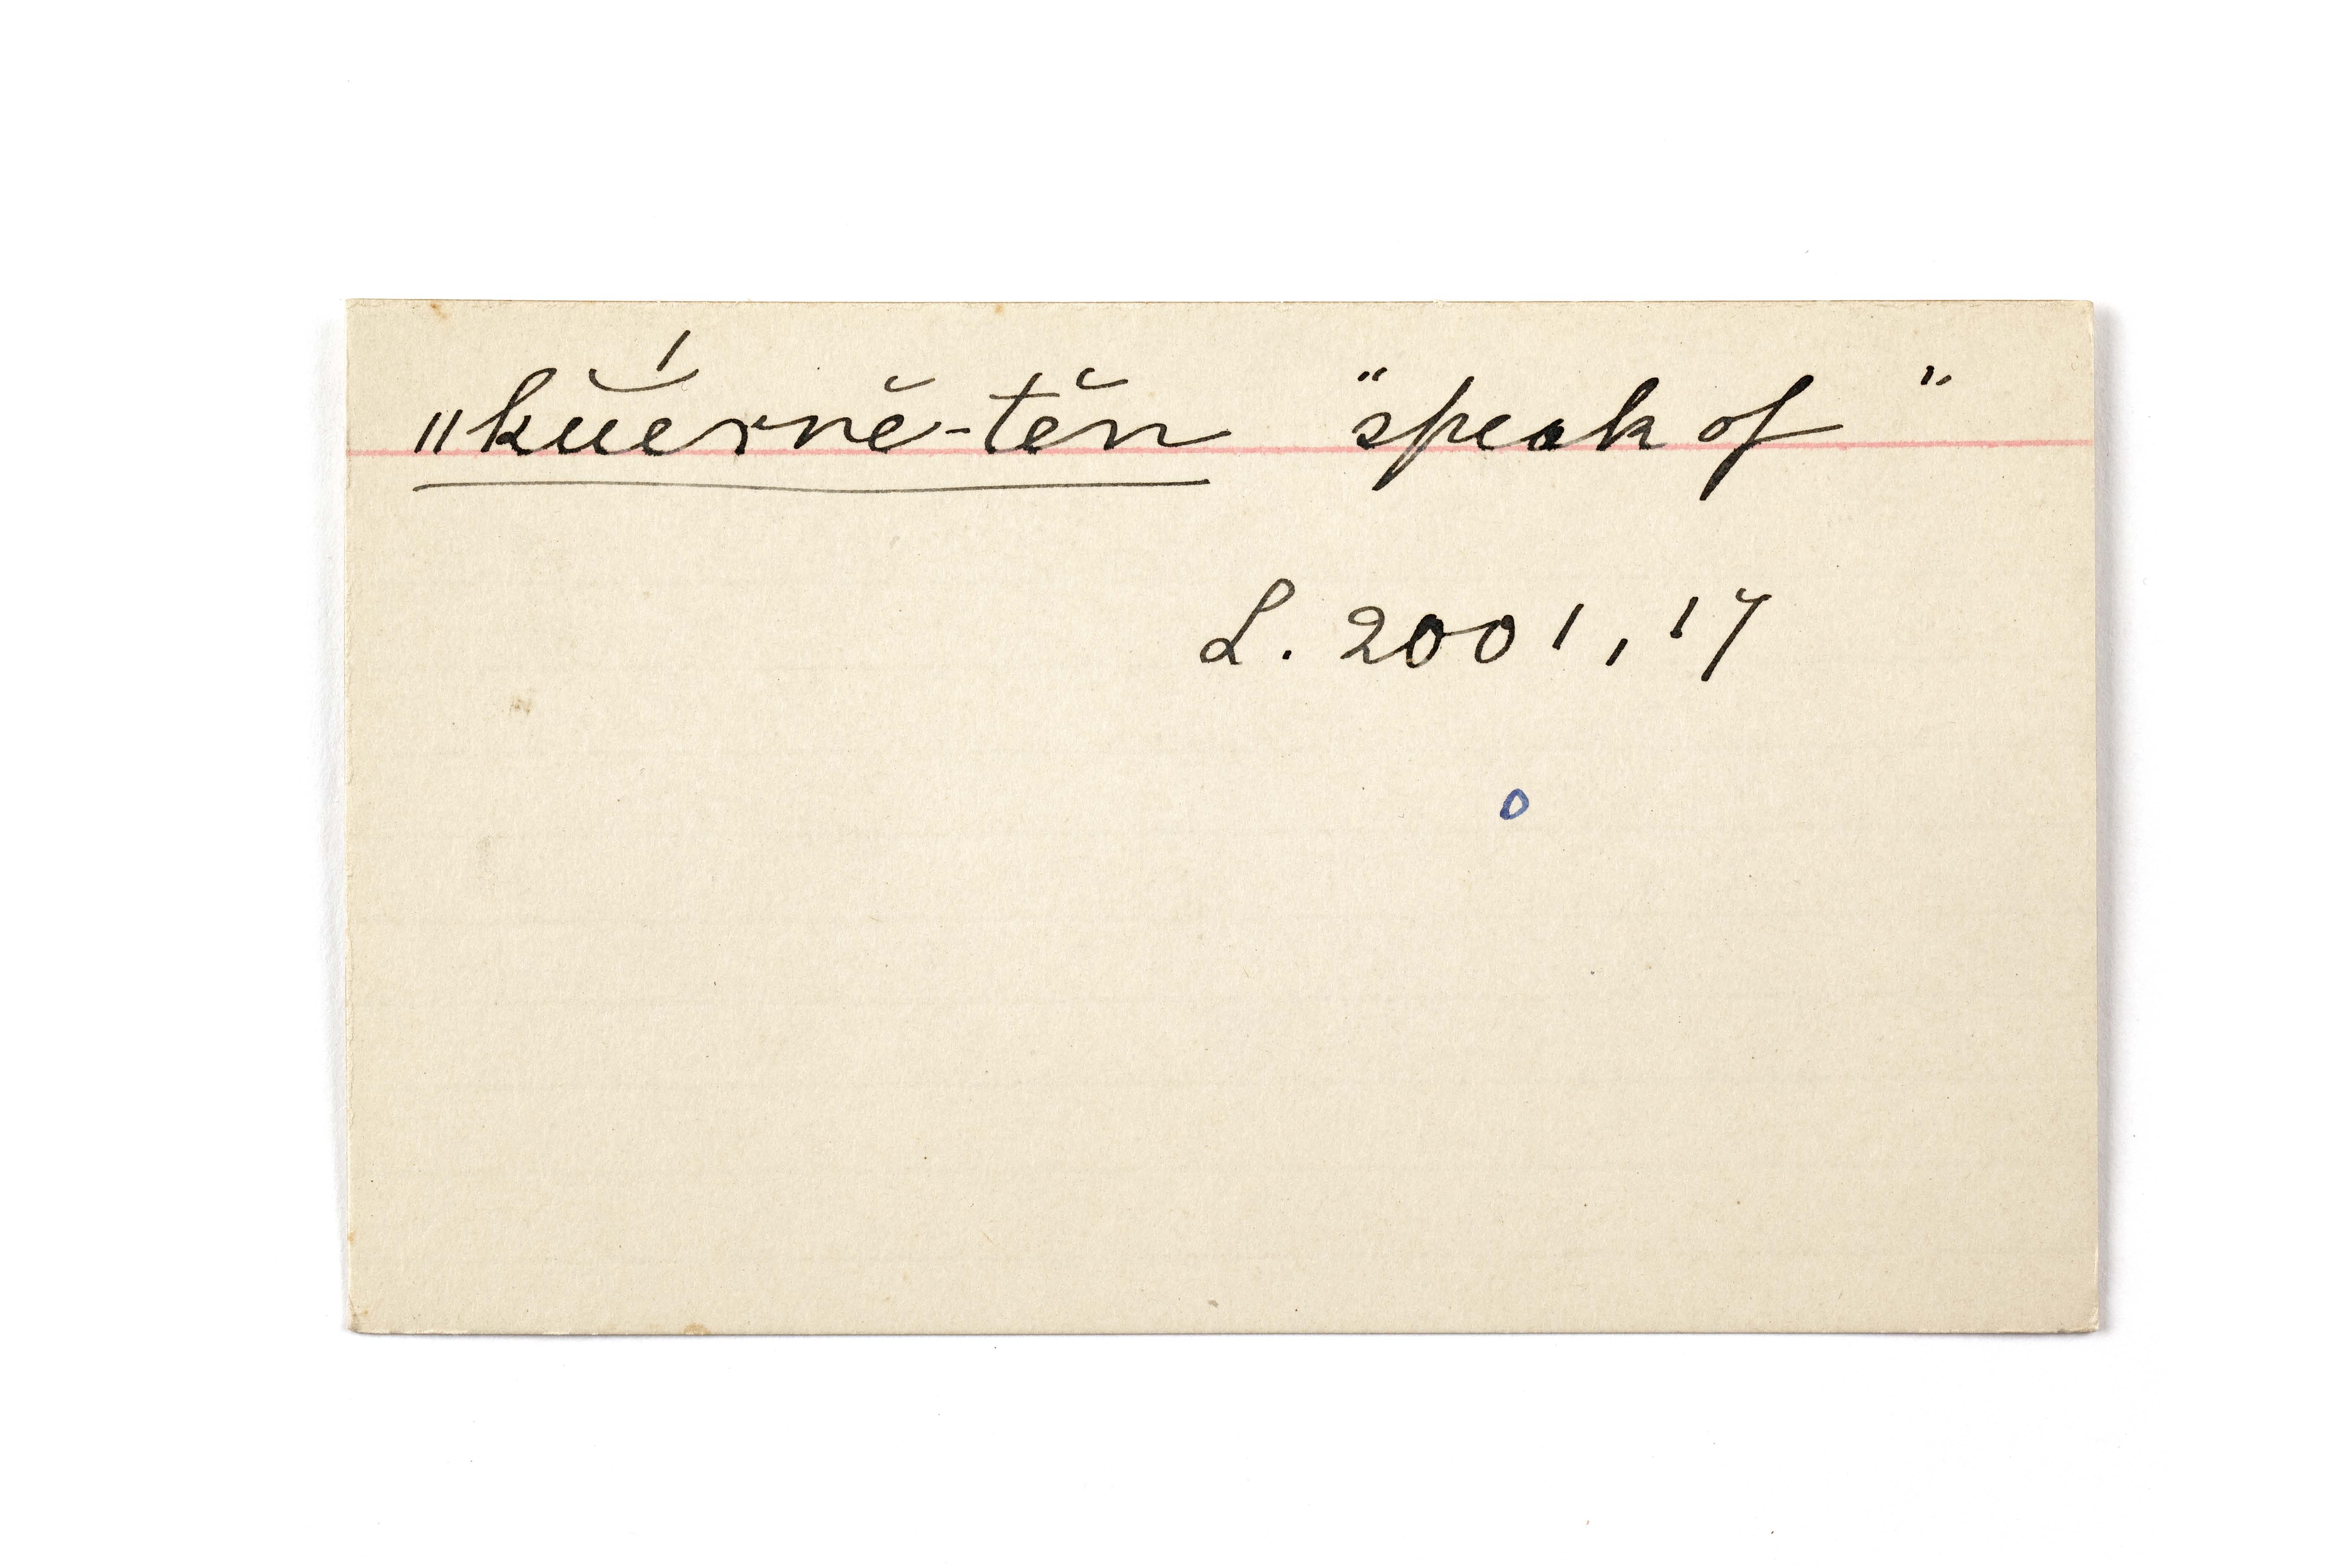 „kŭérnĕ-tĕn "speak of "
L. 2001, 17
o